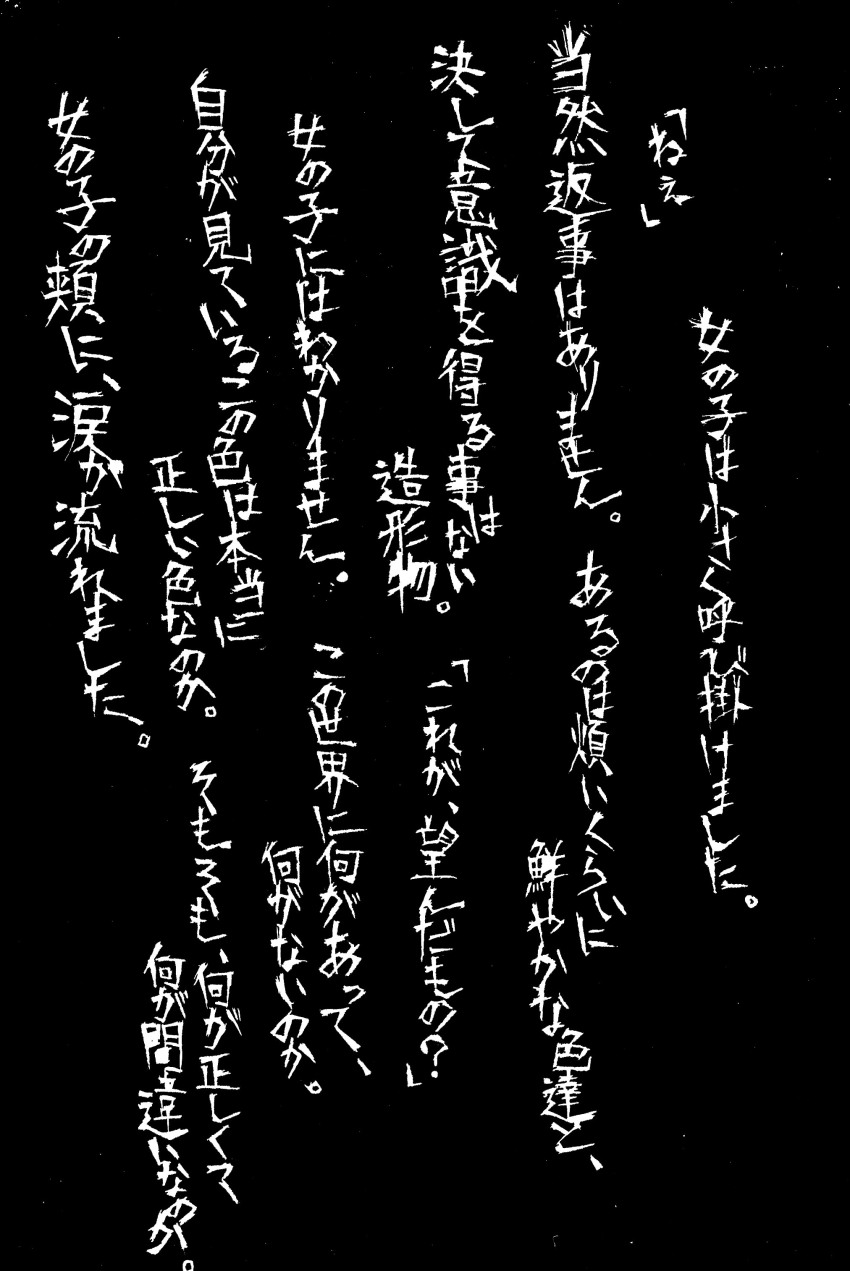 「ねぇ」
女の子は小さく呼び掛けました。
当然返事はありません。
あるのは煩いくらいに
鮮やかな色達と、
決して意識を得る事はない
造形物。
「これが、望んだもの？」
女の子にはわかりません。
この世界に何があって、
何がないのか。
自分が見ているこの色は本当に
正しい色なのか。
そもそも、何が正しくて
何が間違いなのか。
女の子の頬に、涙が流れました。